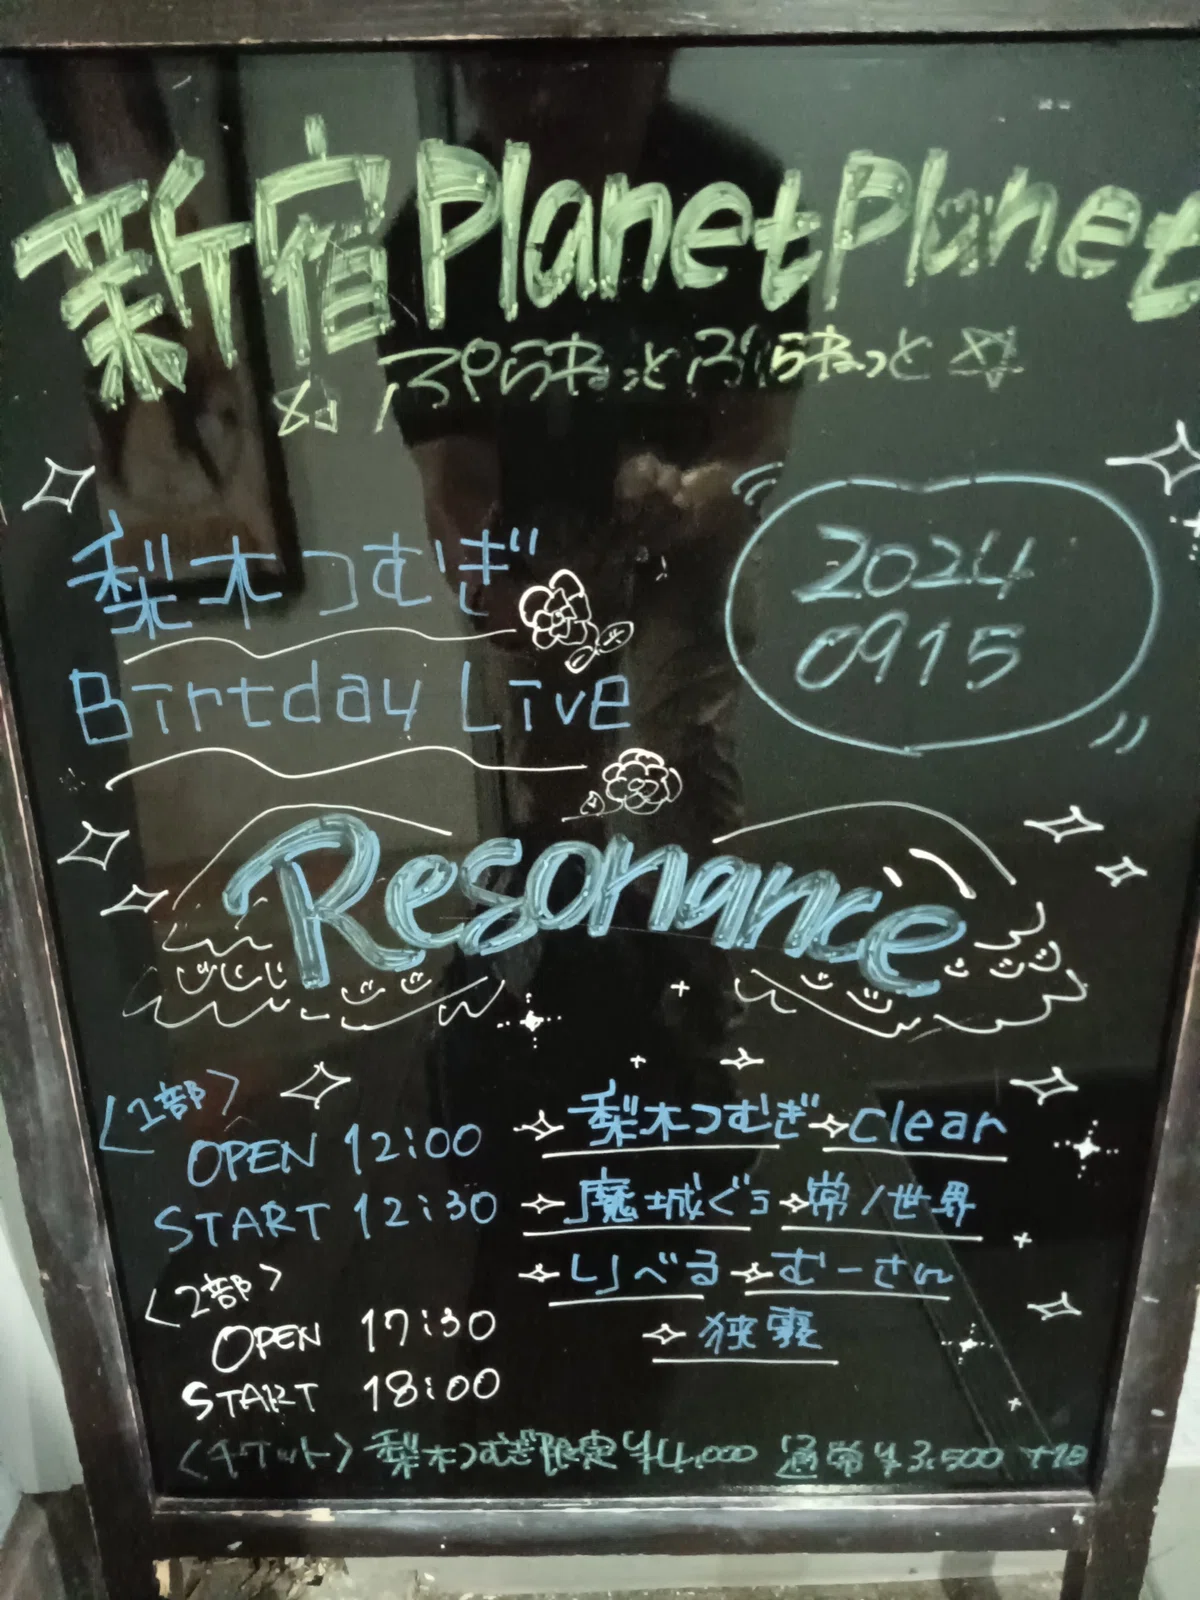 新宿PlanetPlanet
ぷらねっとぷらねっと
梨木つむぎ
2024
0915
Birtday Live
Resonance
〈1部〉
OPEN 12:00
START 12:30
〈2部〉
OPEN 17:30
START 18:00
梨木つむぎ clear
魔城ぐぅ 常ノ世界
りべる むーさん
〈チケット〉梨木つむぎ限定¥4,000 通常¥3,500 +1D